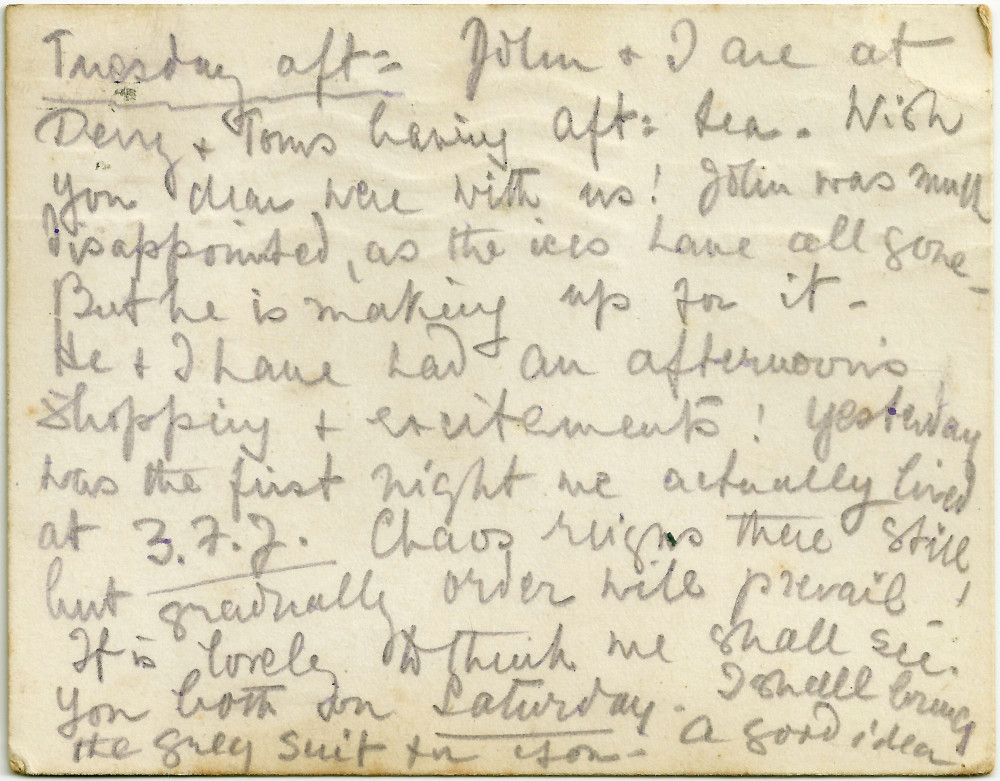 Tuesday aft= John + I are at
Derry + Toms having aft: tea. Wish
you dear were with us! John was much
disappointed, as the ices have all gone -
But he is making up for it -
He + I have had an afternoon's
shopping + excitements! Yesterday
was the first night we actually lived
at 3. F. J. Chaos reigns there still,
but gradually order will prevail!
It is lovely to think we shall see
you both on Saturday. I shall bring
the grey suit for you - A good idea